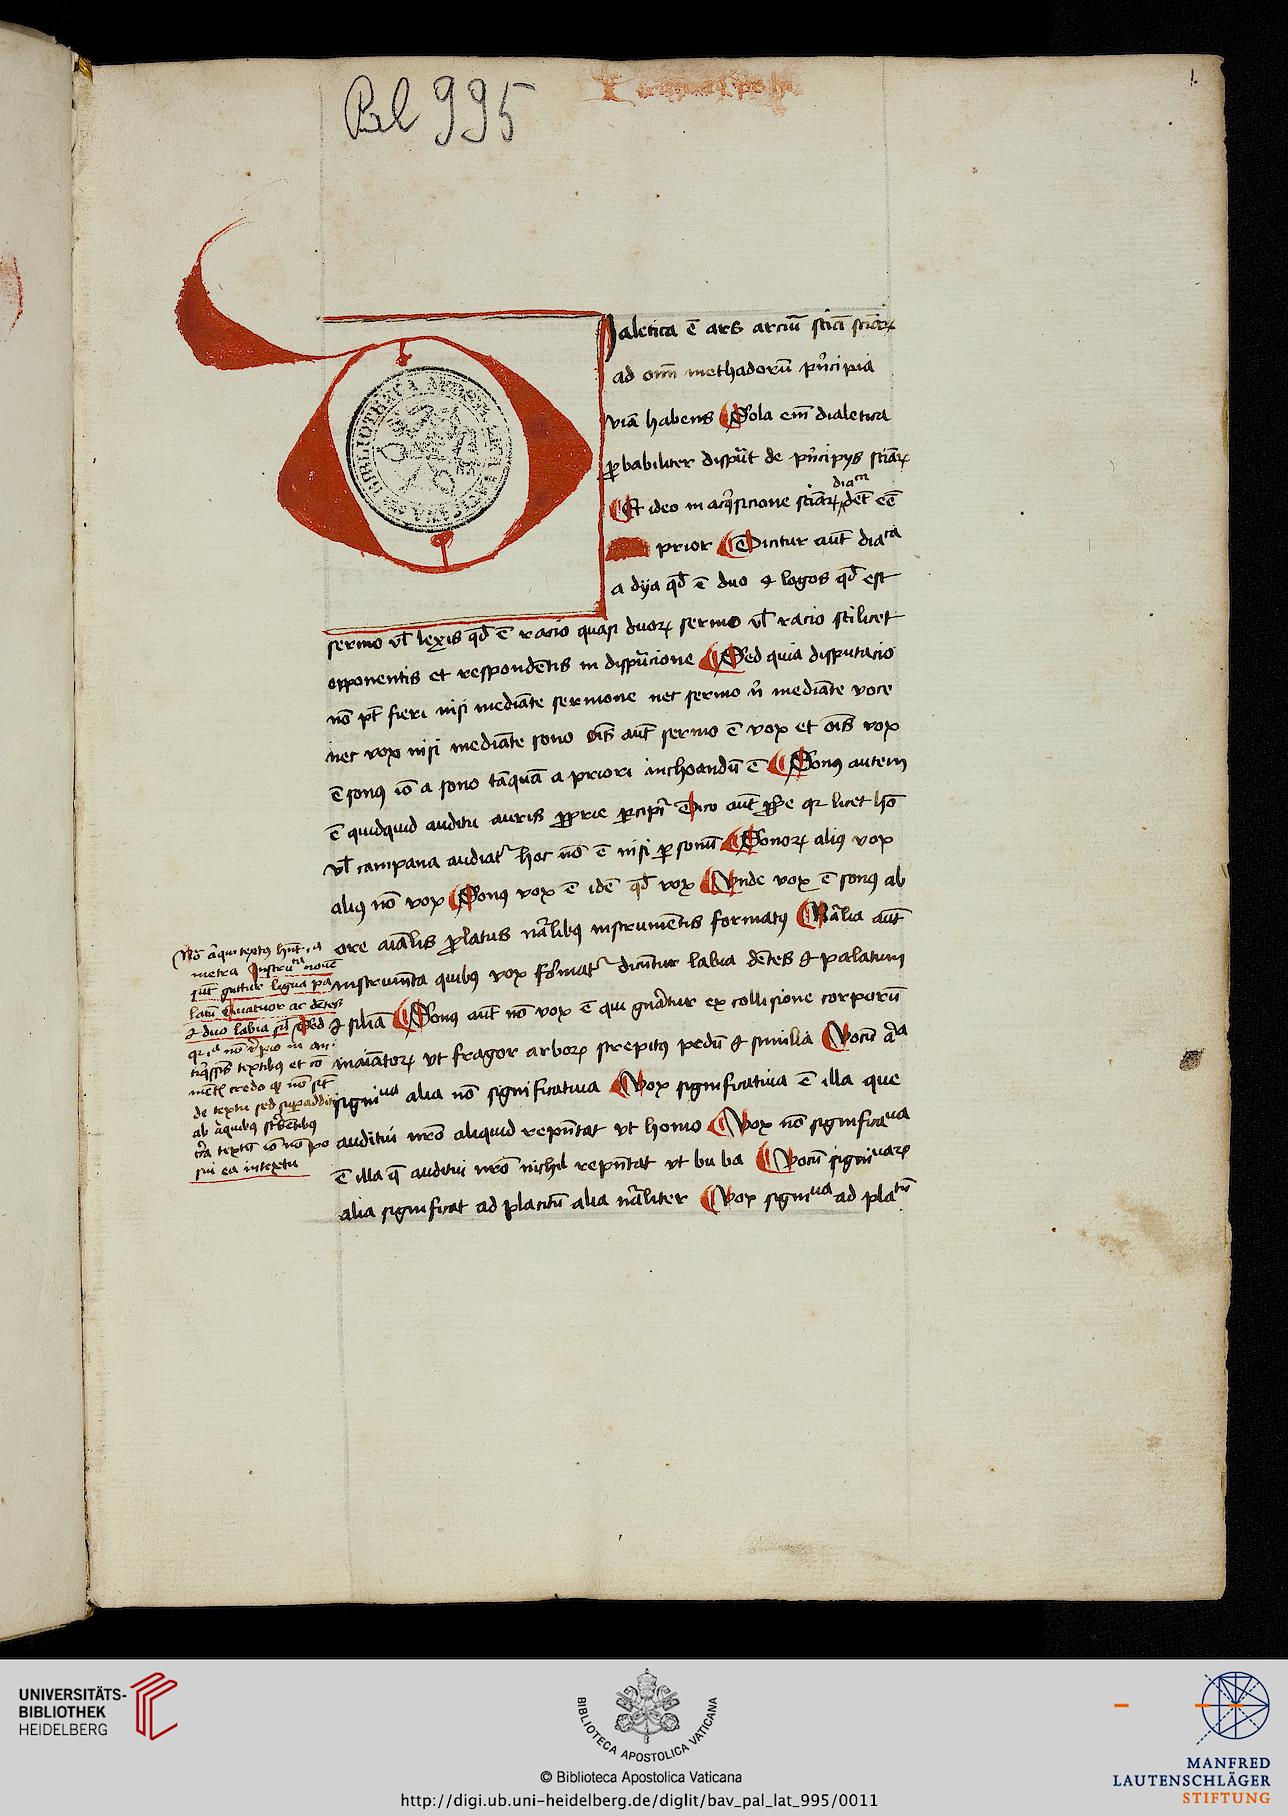 Pal 995
1.
Dialetica ē ars arciū sciā sciāꝝ
ad om̄ methadorū pͥncipia
viā habens Sola em̄ dialetica
ꝓbabiliter disput̄ de pͥncipys sciāꝝ
Et ideo in acq̄sicione sciāꝝ diaca det̄ eē
prior Dicitur aut̄ diaca
a dya qd̄ ē duo et logos qd̄ est
sermo vl̄ lexis qd̄ ē racio quasi duoꝝ sermo vl̄ racio scilicet
opponentis et respondētis in disputācione Sed quia disputacio
nō pt̄ fieri nisi mediāte sermone nec sermo n̄ mediāte voce
nec vox nisi mediāte sono oīs aut̄ sermo ē vox et oīs vox
ē sonꝰ iō a sono tāquā a priori inchoandū ē Sonꝰ autem
ē quidquid auditu auris ꝓprie ꝑcipit̉ Dico aut̄ ꝓprie qꝛ licet hō
vl̄ campana audiat̉ hoc nō ē nisi ꝑ sonū Sonoꝝ aliꝰ vox
aliꝰ nō vox Sonꝰ vox ē idē qd̄ vox Vnde vox ē sonꝰ ab
ore aīalis ꝓlatus nāͣlibꝰ instrumētis formatꝰ Nāͣlia aut̄
instrum̄ta quibꝰ vox format̉ dicūtur labia dētes et palatum
et silia Sonꝰ aut̄ nō vox ē qui gnāͣtur ex collisione corporū
inaiātoꝝ vt fragor arboꝝ strepitꝰ pedū et similia Vocū alia
signiua alia nō significatiua Vox significatiua ē illa que
auditui nr̄o aliquid repn̄tat vt homo Vox nō significaua
ē illa q̄ auditui nr̄o nichil repn̄tat vt bu ba Vocū signiuaꝝ
alia significat ad placitū alia nāͣliter Vox signiua ad platū
metra Instruta nouē
sūt guttur ligua pa
latū Quatuor ac dētes
et duo labia sīl Sed
de textu sed supaddita
sui ea in textu
UNIVERSITÄTS-
BIBLIOTHEK
HEIDELBERG
BIBLIOTECA APOSTOLICA VATICANA
© Biblioteca Apostolica Vaticana
http://digi.ub.uni-heidelberg.de/diglit/bav_pal_lat_995/0011
MANFRED
LAUTENSCHLÄGER
STIFTUNG